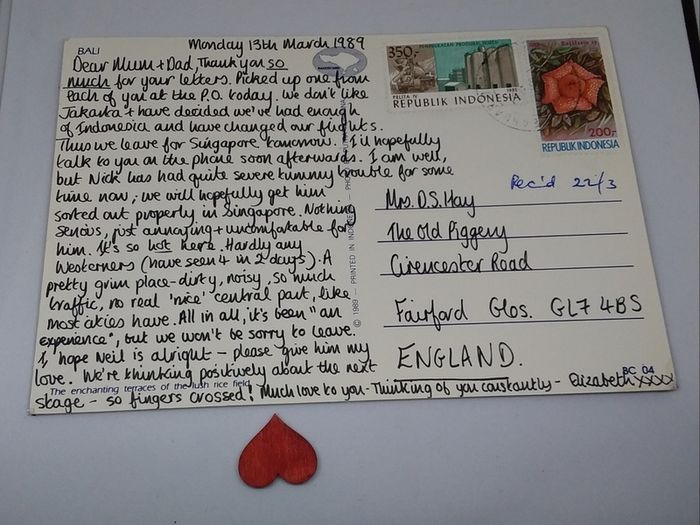 BALI
Monday 13th March 1989
Dear Mum + Dad, Thank you so
much for your letters. Picked up one from
each of you at the P.O. today. We don't like
Jakarta + have decided we've had enough
of Indonesia and have changed our flights.
Thus we leave for Singapore tomorrow. I'll hopefully
talk to you on the phone soon afterwards. I am well,
but Nick has had quite severe tummy trouble for some
time now, we will hopefully get him
sorted out properly in Singapore. Nothing
serious, just annoying + uncomfortable for
him. It's so hot here. Hardly any
Westerners (have seen 4 in 2 days). A
pretty grim place - dirty, noisy, so much
traffic, no real 'nice' central part, like
most cities have. All in all, it's been "an
experience", but we won't be sorry to leave.
I hope Neil is alright - please give him my
love. We're thinking positively about the next
stage - so fingers crossed! Much love to you - Thinking of you constantly - Elizabeth xxxx
The enchanting terraces of the lush rice field
© 1989 - PRINTED IN
350,-
PELITA IV
1985
REPUBLIK INDONESIA
200,-
REPUBLIK INDONESIA
Rec'd 22/3
Mrs. D.S. Hay
The Old Piggery
Cirencester Road
Fairford Glos. GL7 4BS
ENGLAND.
BC 04